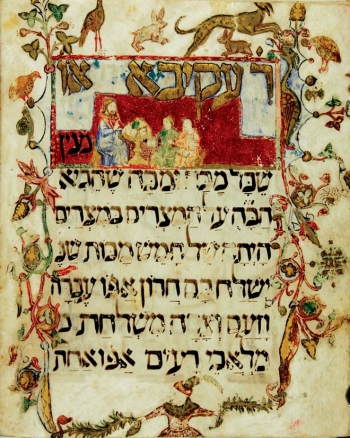 ר עקיבא או
מנין
שכל מכה ומכה שהביא
הקבה על המצרים במצרים
היתה של חמש מכות שנ
ישלח בם חרון אפו עברה
וזעם וצרה משלחת
מלאכי רעים אפו אחת